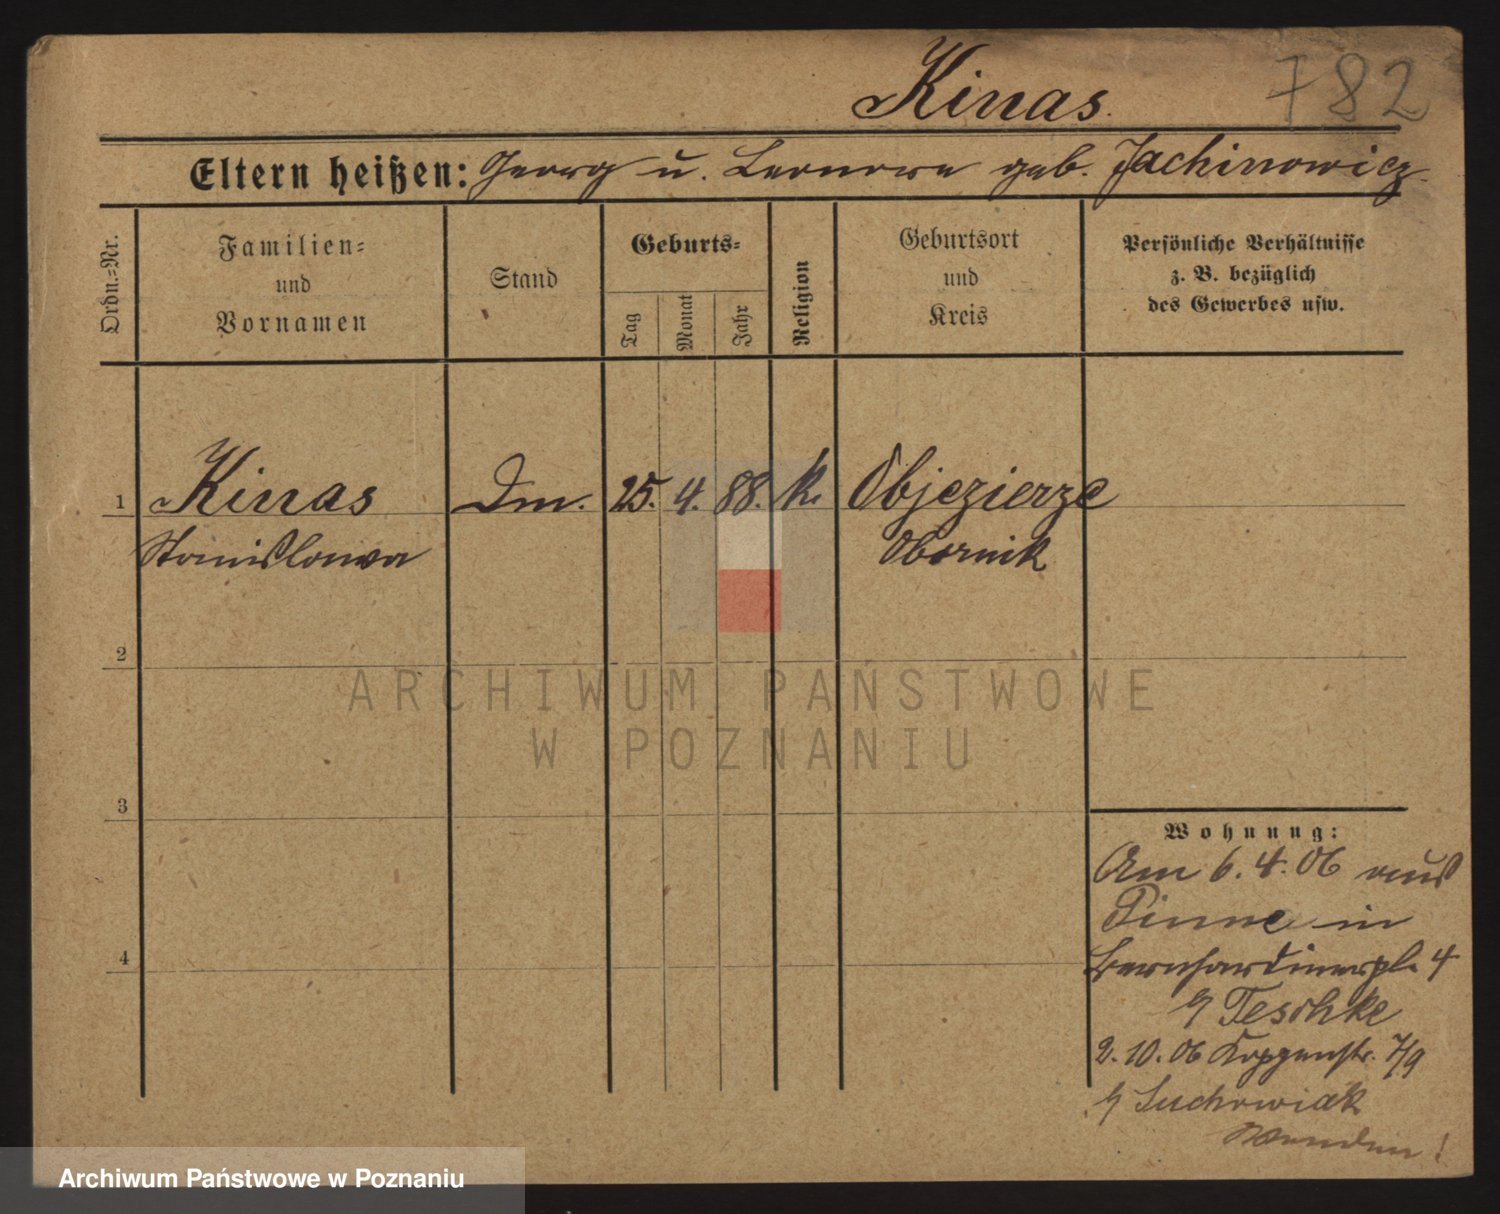 Kinas.
782
Eltern heißen: Georg u. Leonore geb. Jachinowicz.
Ordn.=Nr.
Familien=
und
Vornamen
Stand
Geburts=
Tag
Monat
Jahr
Religion
Geburtsort
und
Kreis
Persönliche Verhältnisse
z. B. bezüglich
des Gewerbes usw.
1 Kinas Dm. 25. 4. 88. k. Objezierze
Stanislawa Obornik
2
3
4
Wohnung:
Am 6.4.06 aus
Pinne in
Bernhardinerpl. 4
Teschke
2.10.06 Koppenstr. 7/9
Suchowiak
Wenden!
ARCHIWUM PAŃSTWOWE
W POZNANIU
Archiwum Państwowe w Poznaniu